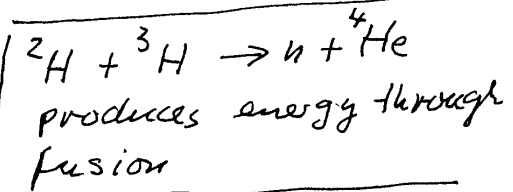 ²H + ³H → n + ⁴He
produces energy through
fusion